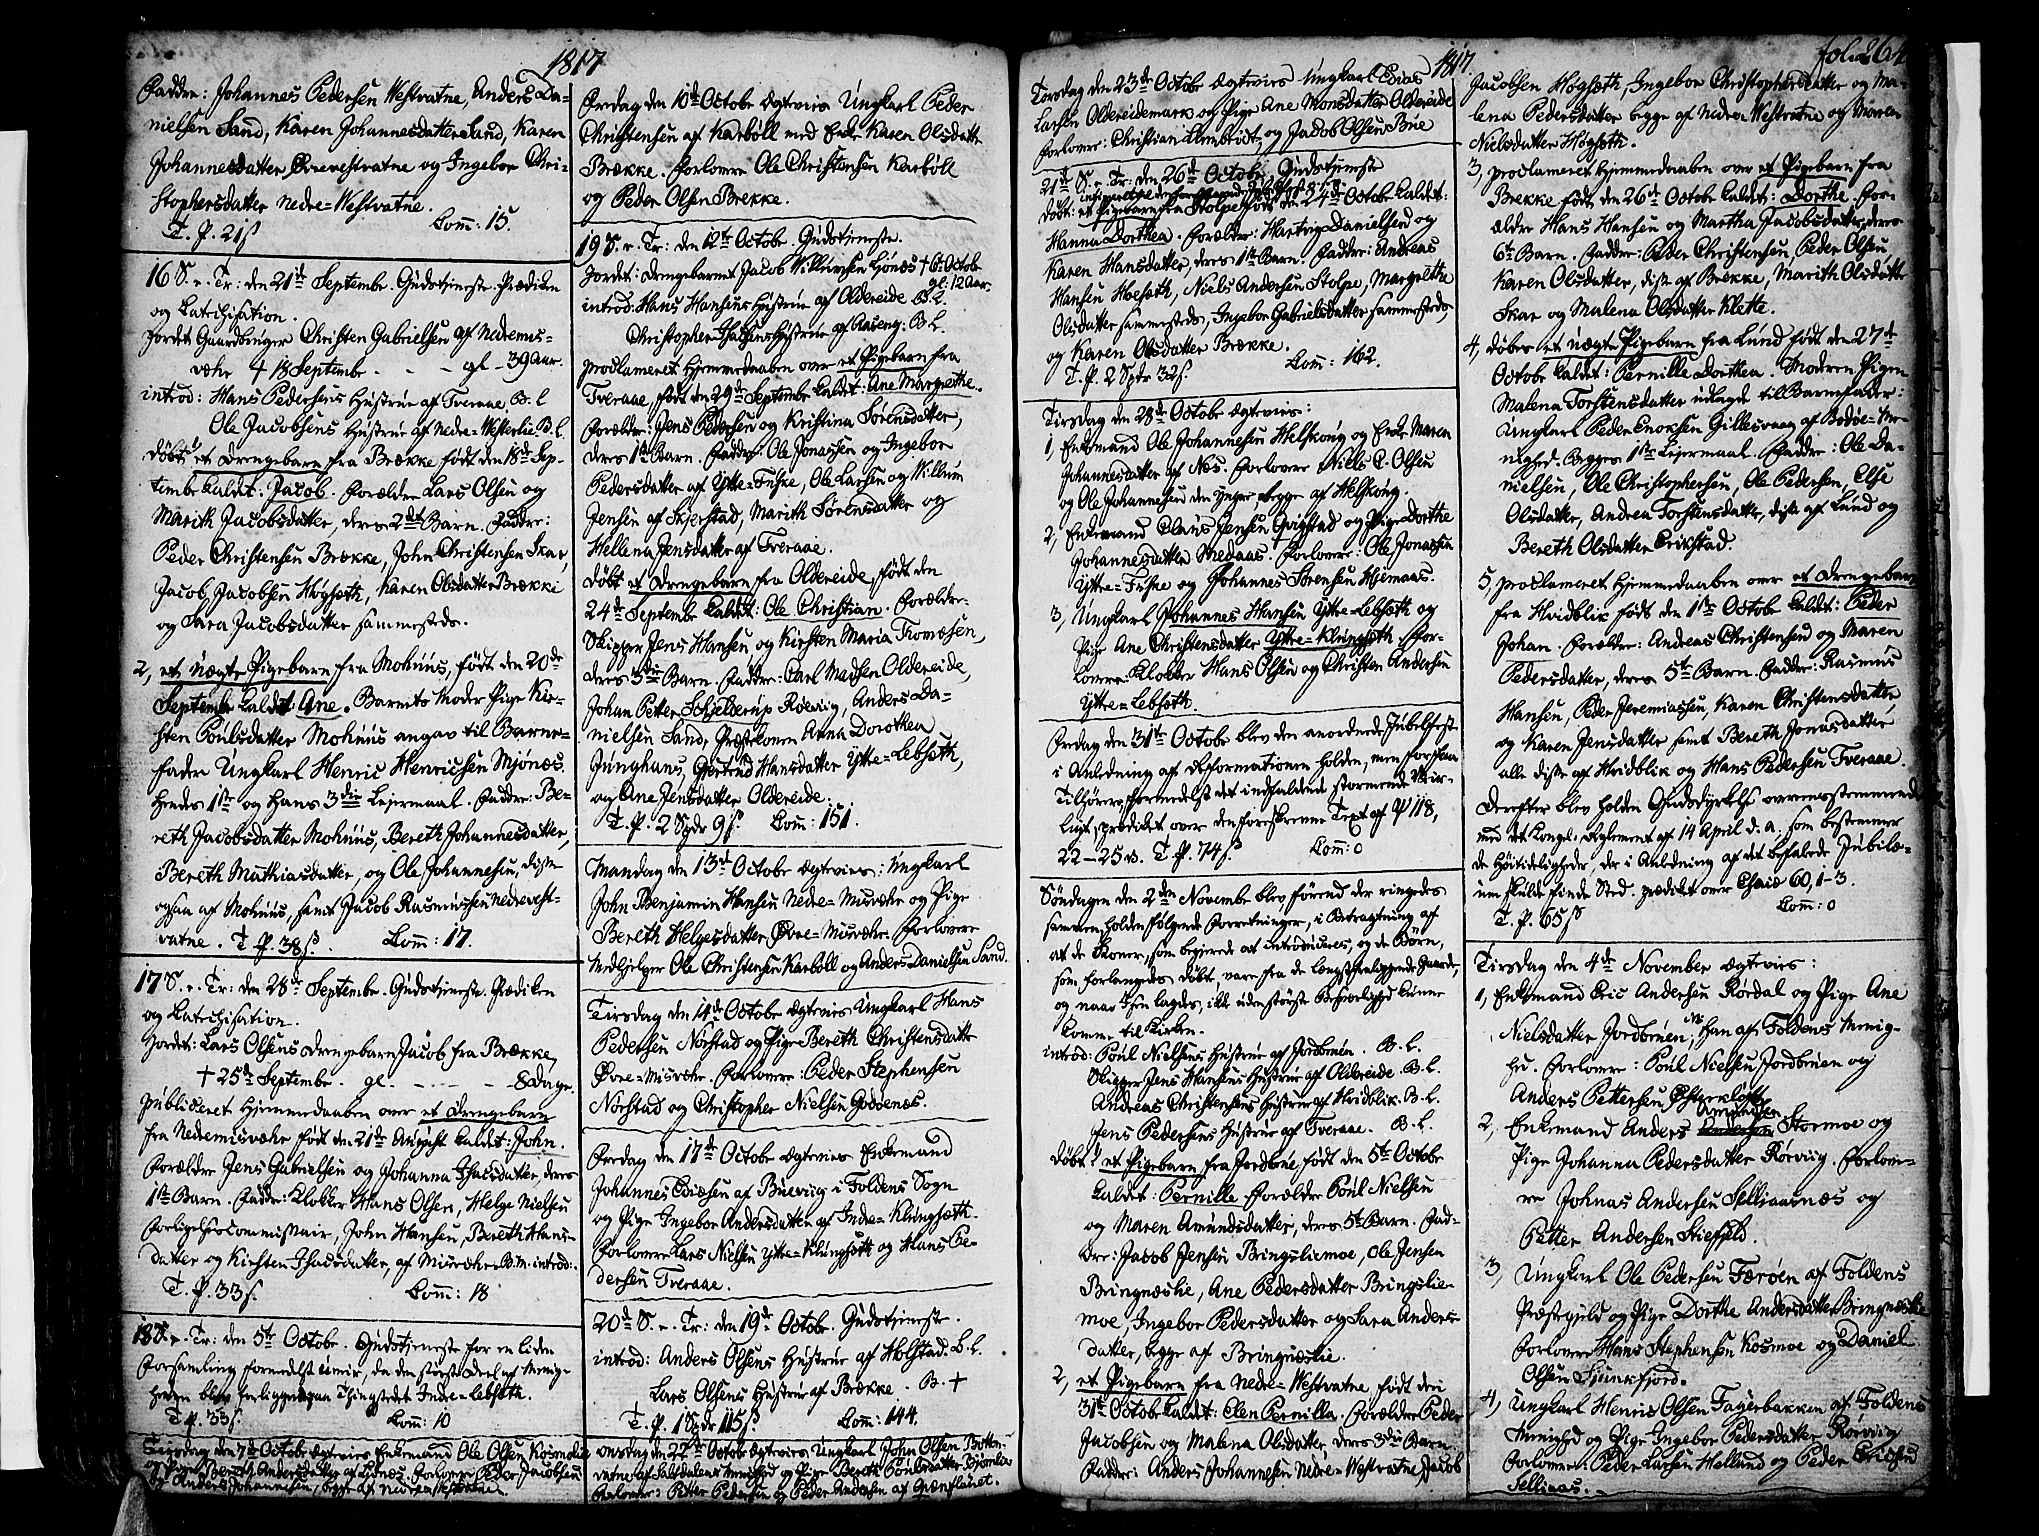 1817
Faddre: Johannes Pedersen Westvatne, Anders Da-
nielsen Sand, Karen Johannesdatter Sand, Karen
Johannesdatter Øvrevestvatne og Ingebor Chri-
stophersdatter Nedre-Westvatne.
T. P. 21ß Com̄: 15.
16 S. e. Tr: den 21de Septembr. Gudstjeneste. Prædiken
og Catechisation.
Jordet Gaardbruger Christen Gabrielsen af Nedremis-
vær † 18 Septembr - - - gl - 39 Aar.
introd: Hans Pedersens Hustrue af Tveraae. B. L
Ole Jacobsens Hustrue af Nedre-Westerlie. B. L.
Döbt et Drengebarn fra Brække født den 18de Sep-
tembr kaldet: Jacob. Forældre Lars Olsen og
Marith Jacobsdatter, deres 2det Barn. Faddre:
Peder Christensen Brække, John Christensen Skar,
Jacob Jacobsen Högsæth, Karen Olsdatter Brække
og Sara Jacobsdatter sammesteds.
2, et uægte Pigebarn fra Mohuus, født den 20de
Septembr kaldet: Ane. Barnets Moder Pige Kir-
sten Poulsdatter Mohuus angav til Barne-
fader Ungkarl Henric Henricsen Mjönæs.
Hendes 1ste og Hans 3die Lejermaal. Faddre: Be-
reth Jacobsdatter Mohuus, Bereth Johannesdatter,
Bereth Mathiasdatter, og Ole Johannesen, disse
ogsaa af Mohuus, samt Jacob Rasmussen Nedrevest-
vatne. T. P. 38ß. Com̄: 17.
17 S. e. Tr: den 28de Septembr. Gudstjeneste. Prædiken
og Catechisation.
Jordet: Lars Olsens Drengebarn Jacob fra Brække,
† 25de Septembr. gl. - - - - 8 Dage.
publiceret Hjemmedaaben over et Drengebarn
fra Nedremisvær født den 21de August kaldet: John.
Forældre Jens Gabrielsen og Johanna Isacsdatter, deres
1ste Barn. Faddre: Klokker Hans Olsen, Helge Nielsen
Forligelsescommissair, John Hansen, Bereth Hans-
datter og Kirsten Isacsdatter, af Misvær. B. M. introd:
T. P. 33ß. Com̄: 18
18 S. e. Tr: den 5te Octobr. Gudstjeneste for en liden
Forsamling formedelst Uveir, da den störste Deel af Menig-
heden blev beliggende paa Thingstedet Indre-Lebsæth.
T. P. 33ß. Com̄: 10
Tirsdag den 7de Octobr ægtevies Enkemand Ole Olsen Kosmolie
og Pige Bereth Andersdatter af Ljönes. Forlovere Peder Jacobsen
og Anders Johannesen, begge af Nedrevestvatne.
Fredag den 10de Octobr ægtevies Ungkarl Peder
Christensen af Karböll med Enke Karen Olsdatter
Brække. Forlovere Ole Christensen Karböll
og Peder Olsen Brekke.
19 S. e. Tr: den 12te Octobr. Gudstjeneste.
Jordet: Drengebarnet Jacob Willumsen Ljönes † 6te Octobr
gl: 12 Aar.
introd: Hans Hansens Hustrue af Oldereide B. L.
Christopher Isacsens Hustrue af Aaseng: B. L.
proclameret Hjemmedaaben over et Pigebarn fra
Tveraae, født den 29de Septembr kaldet: Ane Margrethe.
Forældre: Jens Pedersen og Kristina Sørensdatter,
deres 1ste Barn. Faddre: Ole Jonassen og Ingebor
Pedersdatter af Ytre-Fuske, Ole Larsen og Willum
Jensen af Skjerstad, Marith Sørensdatter og
Hellena Jensdatter af Tveraae.
Döbt et Drengebarn fra Oldereide, født den
24de Septembr kaldet: Ole Christian. Forældre:
Skipper Jens Hansen og Kirsten Maria Thomsen,
deres 3die Barn. Faddre: Carl Madsen Oldereide,
Johan Petter Schjelderup Røevig, Anders Da-
nielsen Sand, Præstekonen Anna Dorothea
Junghans, Gjertrud Hansdatter Ytre-Lebsæth,
og Ane Jensdatter Oldereide.
T. P. 2 Spdr 9ß. Com̄: 151.
Mandag den 13de Octobr ægtevies: Ungkarl
John Benjamin Hansen Nedre-Misvær og Pige
Bereth Helgesdatter Øvre-Misvær. Forlovere
Medhjelper Ole Christensen Karböll og Anders Danielsen Sand.
Tirsdag den 14de Octobr ægtevies Ungkarl Hans
Pedersen Norstad og Pige Bereth Christensdatter
Øvre-Misvær. Forlovere: Peder Stephensen
Norstad og Christopher Nielsen Godöenæs.
Fredag den 17de Octobr ægtevies Enkemand
Johannes Ediæsen af Buevig i Foldens Sogn
og Pige Ingebor Andersdatter af Indre-Klungsæth.
Forlovere Lars Nielsen Ytre-Klungsæth og Hans Pe-
dersen Tveraae.
20de S. e. Tr: den 19de Octobr. Gudstjeneste.
introd: Anders Olsens Hustrue af Holstad. B. L.
Lars Olsens Hustrue af Brække. B. †
T. P. 1 Spdr 115ß Com̄: 144.
Onsdag den 22de Octobr ægtevies Ungkarl John Olsen Botten-
vatne af Saltdalens Menighed og Pige Bereth Poulsdatter Bjørnlie
Forlovere: Petter Pedersen og Peder Andersen af Grønflauet.
1817 fol: 264
Torsdag den 23de Octobr ægtevies Ungkarl Edias
Larsen Oldereidemark og Pige Ane Monsdatter Oldereide
Forlovere: Christian Armbidt og Jacob Olsen Bue
21de S. e. Tr: den 26de Octobr, Gudstjeneste
Döbt: et Pigebarn fra Stolpe født den 24de Octobr kaldet:
Hanna Dorthea. Forældre: Hartvig Danielsen og
Karen Hansdatter, deres 1ste Barn. Faddre: Andreas
Hansen Hoesæth, Niels Andersen Stolpe, Margrethe
Olsdatter sammesteds, Ingebor Gabrielsdatter sammesteds,
og Karen Olsdatter Brække.
T. P. 2 Spdr 32ß. Com̄: 162.
Tirsdag den 28de Octobr ægtevies:
1, Enkemand Ole Johannesen Helskoug og Enke Maren
Johannesdatter af Nes. Forlovere Niels C. Olsen
og Ole Johannesen den Yngre, begge af Helskoug.
2, Enkemand Claus Jensen Qvigstad og Pige Dorthe
Johannesdatter Medaas. Forlovere: Ole Jonassen
Ytre-Fuske og Johannes Sørensen Hjemaas.
3, Ungkarl Johannes Hansen Ytre-Lebsæth og
Pige Ane Christensdatter Ytre-Klungsæth. For-
lovere Klokker Hans Olsen og Christen Andersen
Ytre-Lebsæth.
Fredag den 31te Octobr blev den anordnede Jubelfest
i Anledning af Reformationen holden, men for faa
Tilhørere, formedelst det indfaldende stormende Veir-
ligt, prædiket over den foreskrevne Text af ψ 118,
22-25 v. T. P. 74ß Com̄: 0
Søndagen den 2den November blev førend der ringedes
sammen, holden følgende Forretninger, i Betragtning af
at de Koner, som begjerede at introduceres, og de Börn,
som forlangedes döbt, vare fra de længst fraliggende Gaarde,
og naar Iis lagdes, ikke uden störste Besværlighed kunne
komme til Kirken.
introd: Poul Nielsens Hustrue af Jordbroen. B. L.
Skipper Jens Hansens Hustrue af Oldereide B. L.
Andreas Christensens Hustrue af Hvidblik. B. L.
Jens Pedersens Hustrue af Tveraae. B. L.
Döbt 1, et Pigebarn fra Jordbroe, født den 5te Octobr
kaldet: Pernille. Forældre Poul Nielsen
og Maren Amundsdatter, deres 5te Barn. Fad-
dre: Jacob Jensen Bringsliemoe, Ole Jensen
Bringneslie, Ane Pedersdatter Bringslie-
moe, Ingebor Pedersdatter og Sara Anders-
datter, begge af Bringneslie.
2, et Pigebarn fra Nedre-Westvatne, født den
31te Octobr kaldet: Elen Pernilla. Forældre Peder
Jacobsen og Malena Olsdatter, deres 3die Barn.
Faddre: Anders Johannesen Nedre-Westvatne, Jacob
Jacobsen Högsæth, Ingebor Christophersdatter og Ma-
lena Pedersdatter begge af Nedre Westvatne og Maren
Nielsdatter Högsæth.
3, proclameret Hjemmedaaben over et Pigebarn fra
Brekke født den 26de Octobr kaldet: Dorthe. For-
ældre Hans Hansen og Martha Jacobsdatter, deres
6te Barn. Faddre: Peder Christensen, Peder Olsen
Karen Olsdatter, disse af Brekke, Marith Olsdatter
Skar og Malena Olsdatter Klette.
4, Döbes et uægte Pigebarn fra Lund født den 27de
Octobr kaldet: Pernille Dorthea. Moderen Pigen
Malena Torstensdatter udlagde til Barnefader:
Ungkarl Peder Enoksen Gillesvaag af Bodöe-Me-
nighed. Begges 1ste Lejermaal. Faddre: Ole Da-
nielsen, Ole Christophersen, Ole Pedersen, Else
Olsdatter, Andrea Torstensdatter, disse af Lund og
Bereth Olsdatter Erikstad.
5, proclameret Hjemmedaaben over et Drengebarn
fra Hvidblik født den 1ste Octobr kaldet: Peder
Johan. Forældre: Andreas Christensen og Maren
Pedersdatter, deres 5te Barn. Faddre: Rasmus
Hansen, Peder Jeremiassen, Karen Christensdatter
og Karen Jensdatter samt Bereth Jonasdatter
alle disse af Hvidblik og Hans Pedersen Tveraae.
Derefter blev holden Gudsdyrkelse overensstemmende
med det Kongel. Reglement af 14 April d. a. som bestemmer
de Höitideligheder, der i Anledning af det befalede Jubilæ-
um skulde finde Sted. prædiket over Esaia 60, 1-3.
T. P. 65ß Com̄: 0
Tirsdag den 4de November ægtevies:
1, Enkemand Eric Andersen Rørdal og Pige Ane
Nielsdatter Jordbroen; Han af Foldens Menig-
hed. Forlovere: Poul Nielsen Jordbroen og
Anders Pettersen Østerkløft
2, Enkemand Anders Amundsen Stormoe og
Pige Johanna Pedersdatter Rörvig. Forlove-
re Johnas Andersen Selliaasnæs og
Petter Andersen Stiefjeld.
3, Ungkarl Ole Pedersen Færöen af Foldens
Præstegjeld og Pige Dorthe Andersdatter Bringneslie
Forlovere Hans Stephensen Kosmoe og Daniel
Olsen Sjunkfjord.
4, Ungkarl Henric Olsen Fagerbakken af Foldens
Menighed og Pige Ingebor Pedersdatter Rörvig
Forlovere Peder Larsen Helland og Peder Ericsen
Selliaas.